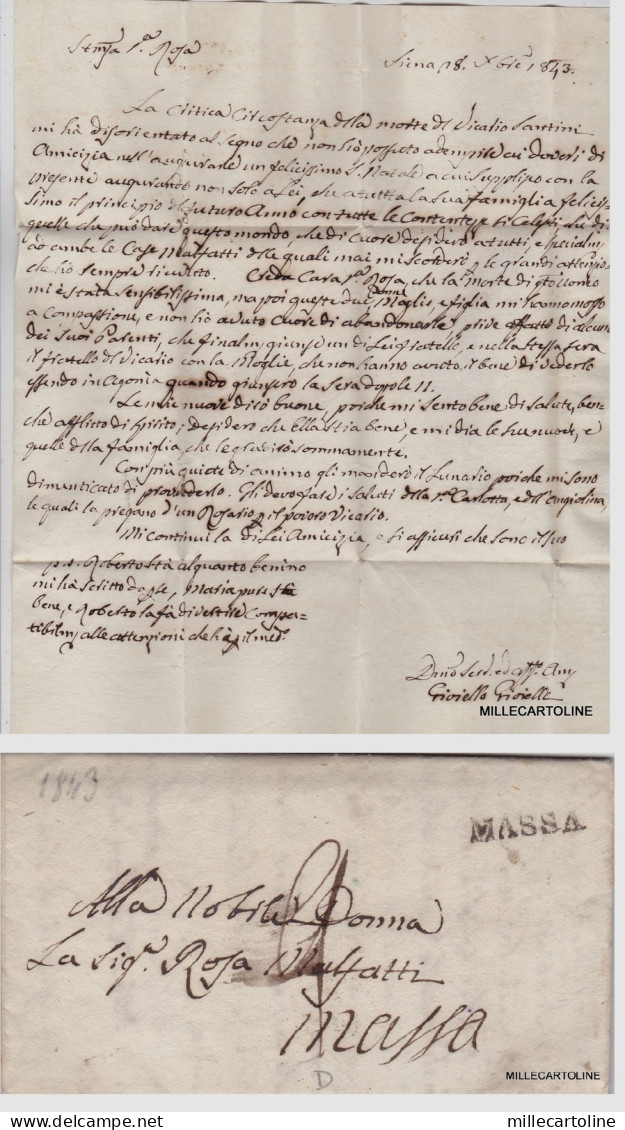 Stim̃a Sig.ra Rosa
Siena 18. Xbre 1843.
La Critica Circostanza della morte del Vicario Santini
mi hà disorientato al segno che non hò possuto adempire ai doveri di
Amicizia nell'augurarle un felicissimo S. Natale a cui supplisco con la
presente augurando non solo a Lei, che a tutta la sua famiglia felicis-
simo il principio del futuro Anno con tutte le Contentezze
quelle che può dare questo mondo, che di Cuore desidero a tutti, e
ad ambe le Case Malfatti delle quali mai mi scorderò le grandi attenzio-
che hò sempre ricevuto. Creda Cara Sig.ra Rosa, che la morte di
mi è stata sensibilissima, ma poi queste due Donne Moglie, e figlia mi hanno mosso
a Compassione, e non hò avuto Cuore di abandonarle, prive affatto di alcuno
dei suoi Parenti, che finalm. giunse un di Lei fratello, e nella stessa sera
il fratello del Vicario con la Moglie, che non hanno avuto il bene di vederlo
essendo in agonia quando giunsero la sera dopo le 11.
Le mie nuove di sò buone, poiche mi sento bene di salute, ben-
chè afflitto di spirito; desidero che Ella stia bene, e mi dia le sue nuove, e
quelle della famiglia, che le gradirò sommamente.
Con più quiete di animo gli manderò il Lunario poiche mi sono
dimenticato di provederlo. Gli devo fare i saluti della Sig.ra Carlotta, e dell'Angiolina,
le quali la pregano d'un Rosario p. il povero Vicario.
Mi continui la di Lei Amicizia, e si assicuri che sono il suo
P.S. Roberto stà alquanto benino
mi hà scritto da se, Maria pure stà
bene, e Roberto la fà divertire Compa-
tibilm. alle attenzioni che hà p. il med.
Dmo Serv. ed aff. Am
Gioiello Gioielli
MILLECARTOLINE
1843
MASSA
Alla Nobile Donna
La Sig.ra Rosa Malfatti
Massa
D
MILLECARTOLINE
millecartoline